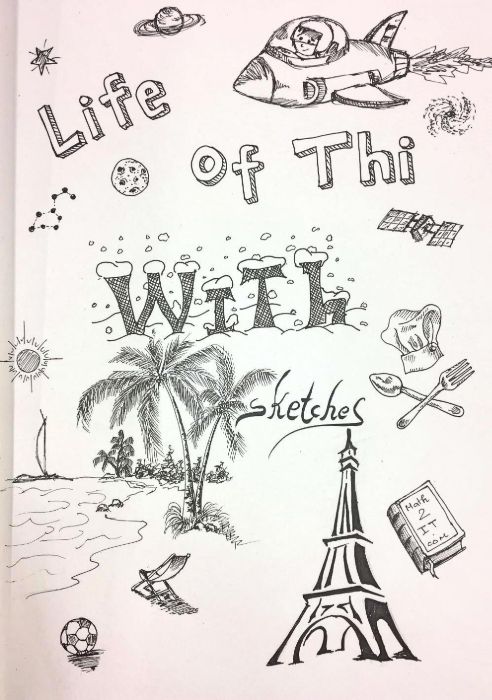 Life
of Thi
With
sketches
Math
2
IT
.com